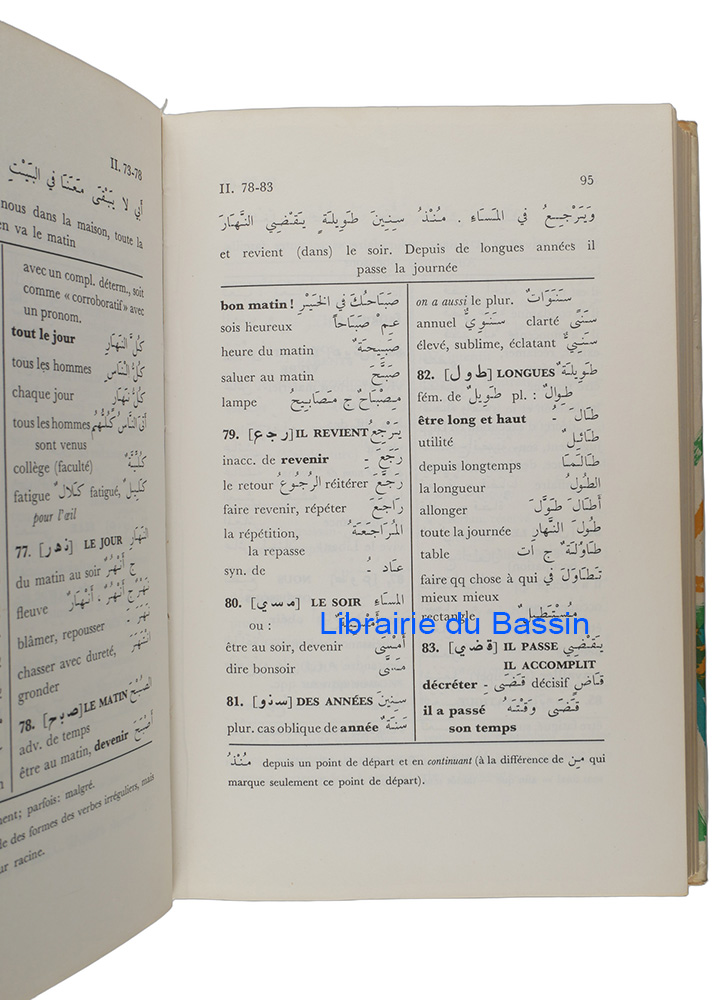 II. 73-78
أَبِي لَا يَبْقَى مَعَنَا فِي البَيْتِ
nous dans la maison, toute la
en va le matin
avec un compl. déterm., soit
comme « corroboratif » avec
un pronom.
tout le jour كُلَّ النَّهَارِ
tous les hommes كُلُّ النَّاسِ
chaque jour كُلَّ نَهَارٍ
tous les hommes أَتَى النَّاسُ كُلُّهُمْ
sont venus
collège (faculté) كُلِّيَّةٌ
fatigue كَلَالٌ fatigué, كَلِيلٌ
pour l'œil
77. [نهر] LE JOUR النَّهَارِ
du matin au soir ج أَنْهُرٌ
fleuve نَهْرٌ ج أَنْهُرٌ ، أَنْهَارٌ
blâmer, repousser نَهَرَ
chasser avec dureté, انْتَهَرَ
gronder
78. [صبح] LE MATIN الصُّبْحَ
adv. de temps
être au matin, devenir أَصْبَحَ
ment; parfois: malgré.
le des formes des verbes irréguliers, mais
ur racine.
II. 78-83 95
وَيَرْجِعُ فِي المَسَاءِ . مُنْذُ سِنِينَ طَوِيلَةٍ يَقْضِي النَّهَارَ
et revient (dans) le soir. Depuis de longues années il
passe la journée
bon matin ! صَبَاحُكَ فِي الخَيْرِ
sois heureux عِمْ صَبَاحاً
heure du matin صَبِيحَةٌ
saluer au matin صَبَّحَ
lampe مِصْبَاحٌ ج مَصَابِيحُ
79. [رجع] IL REVIENT يَرْجِعُ
inacc. de revenir رَجَعَ -ِ
le retour الرُّجُوعُ réitérer رَجَّعَ
faire revenir, répéter رَاجَعَ
la répétition, المُرَاجَعَةُ
la repasse
syn. de عَادَ -ُ
80. [مسي] LE SOIR المَسَاءِ
ou :
être au soir, devenir أَمْسَى
dire bonsoir مَسَّى
81. [سنو] DES ANNÉES سِنِينَ
plur. cas oblique de année سَنَةٌ
on a aussi le plur. سَنَوَاتٌ
annuel سَنَوِيٌّ clarté سَنًى
élevé, sublime, éclatant سَنِيٌّ
82. [طول] LONGUES طَوِيلَةٌ
fém. de طَوِيلٌ pl. : طِوَالٌ
être long et haut طَالَ -ُ
utilité طَائِلٌ
depuis longtemps طَالَمَا
la longueur الطُّولُ
allonger أَطَالَ طَوَّلَ
toute la journée طُولَ النَّهَارِ
table طَاوِلَةٌ ج ات
faire qq chose à qui تَطَاوَلَ فِي
mieux mieux
rectangle مُسْتَطِيلٌ
83. [قضي] IL PASSE يَقْضِي
IL ACCOMPLIT
décréter -ِ قَضَى décisif قَاضٍ
il a passé قَضَى وَقْتَهُ
son temps
مُنْذُ depuis un point de départ et en continuant (à la différence de مِنْ qui
marque seulement ce point de départ).
Librairie du Bassin